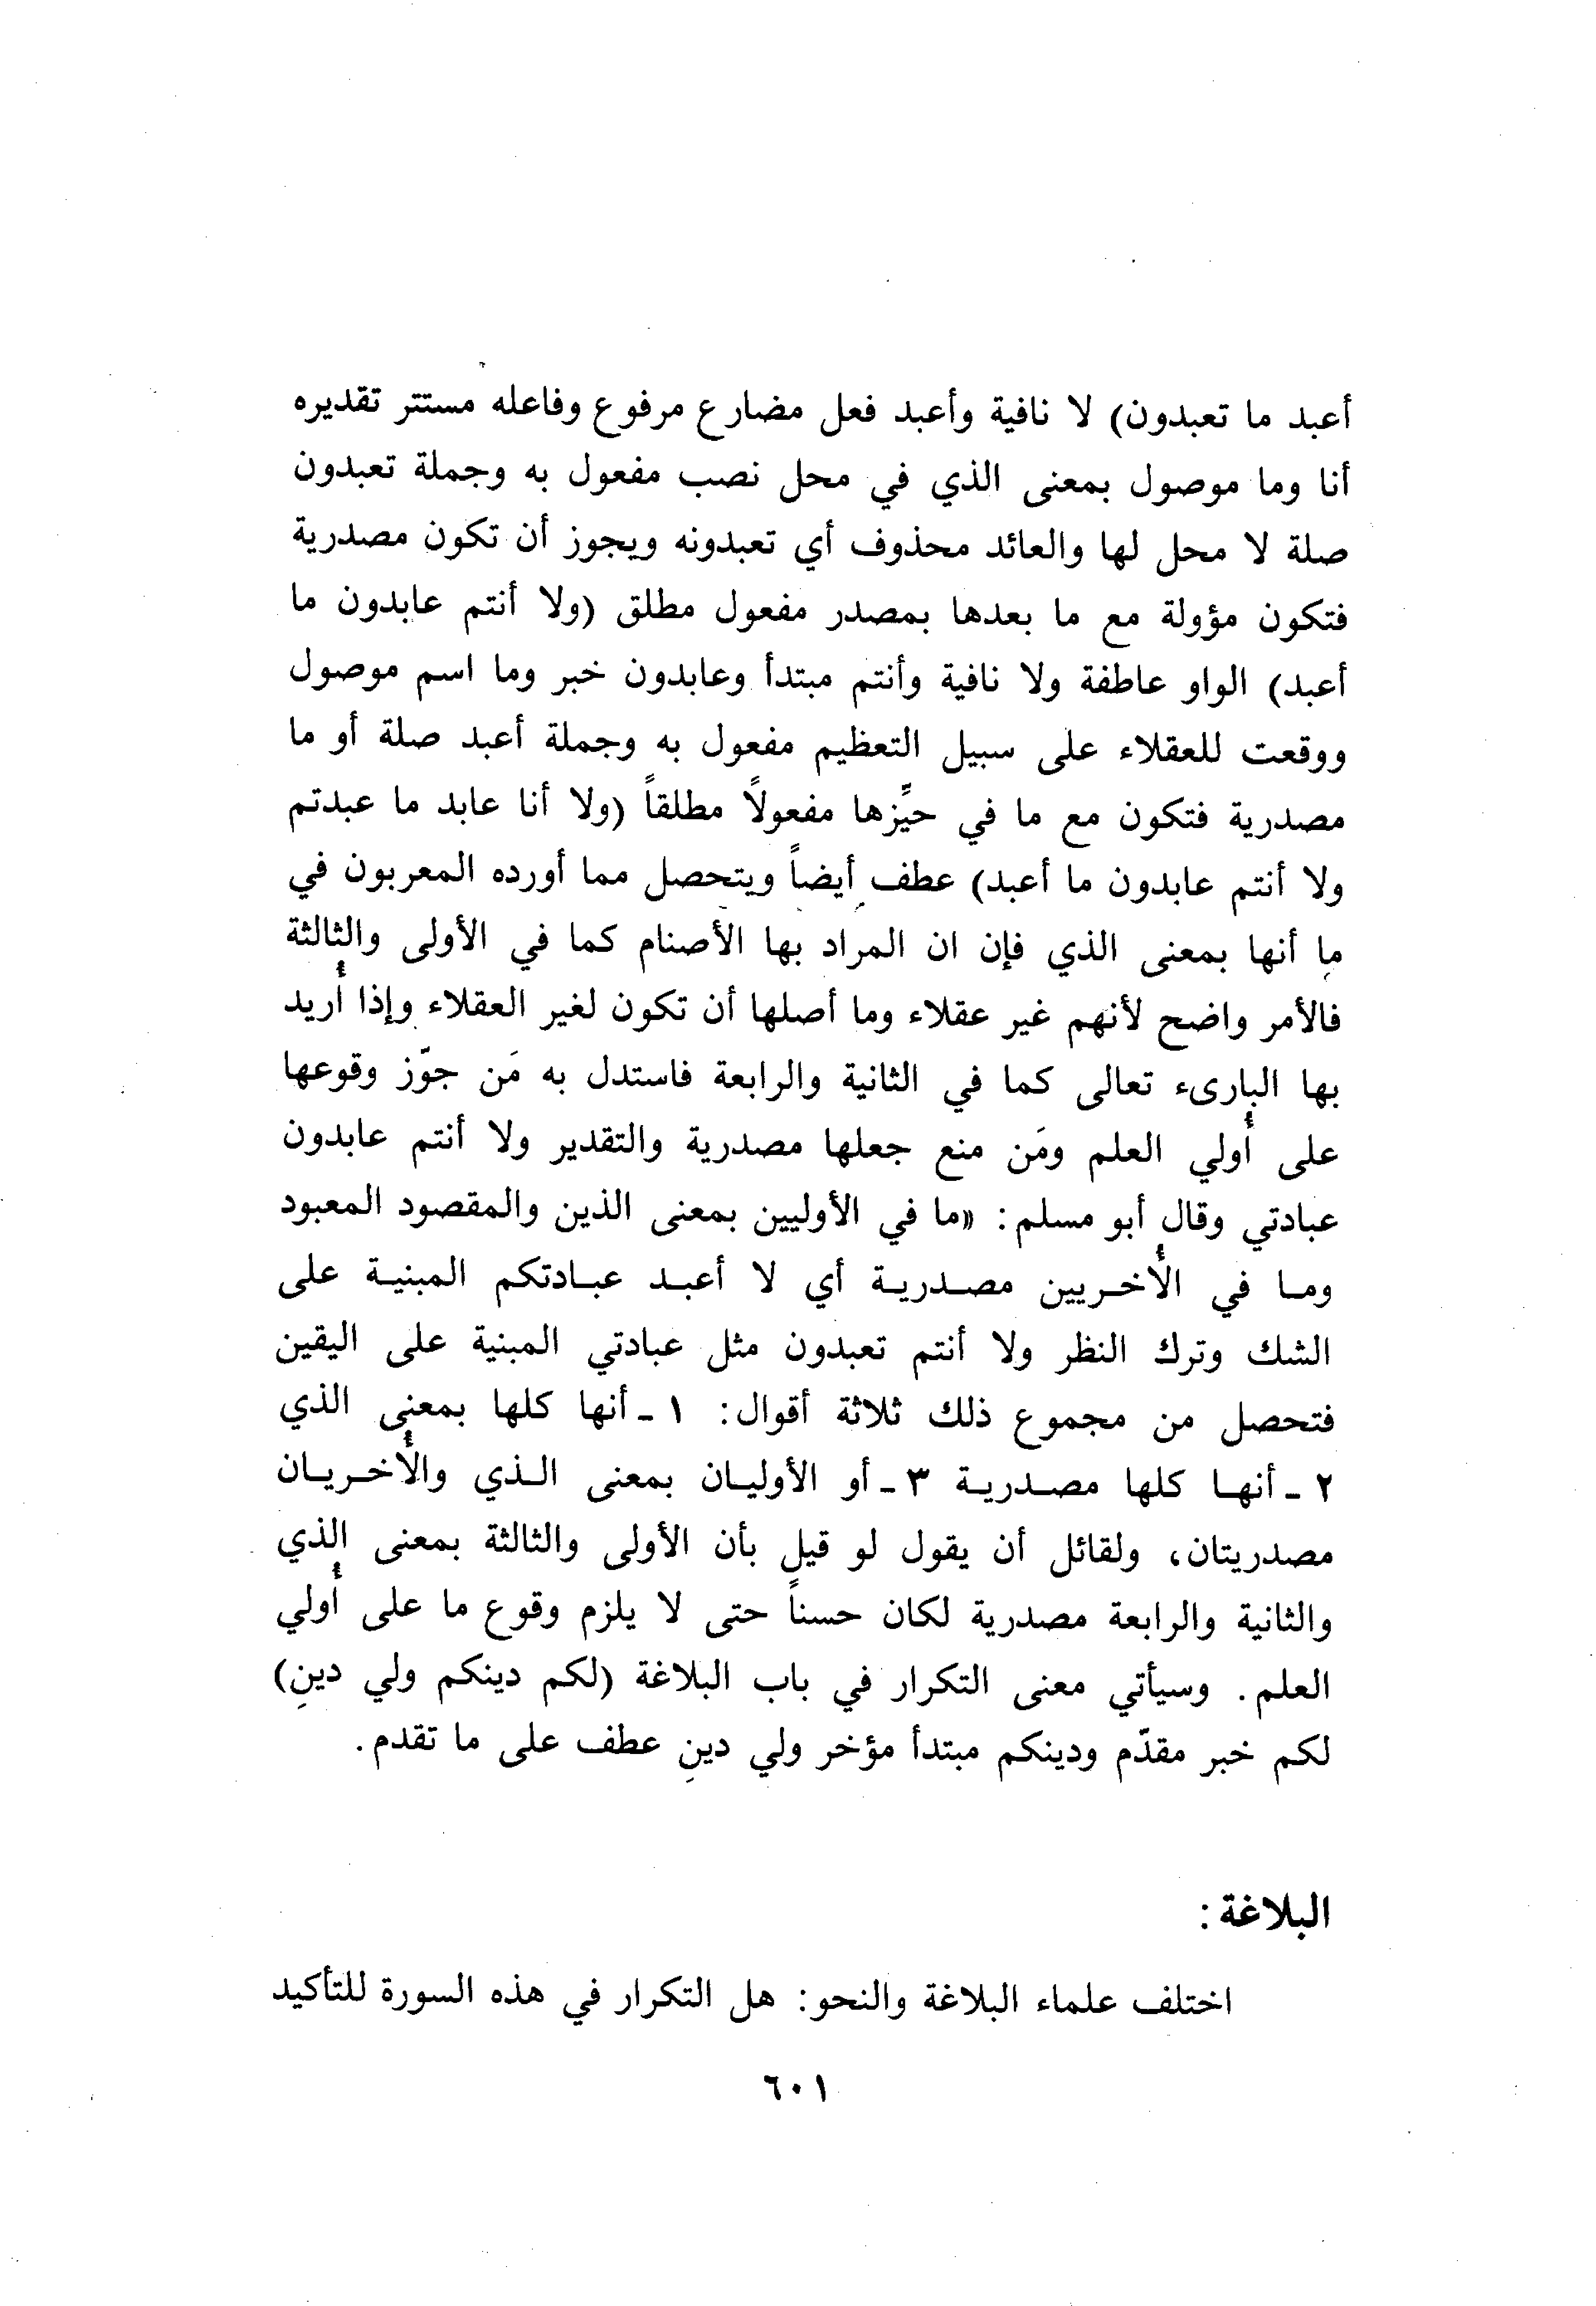 أعبد ما تعبدون) لا نافية وأعبد فعل مضارع مرفوع وفاعله مستتر تقديره
أنا وما موصول بمعنى الذي في محل نصب مفعول به وجملة تعبدون
صلة لا محل لها والعائد محذوف أي تعبدونه ويجوز أن تكون مصدرية
فتكون مؤولة مع ما بعدها بمصدر مفعول مطلق (ولا أنتم عابدون ما
أعبد) الواو عاطفة ولا نافية وأنتم مبتدأ وعابدون خبر وما اسم موصول
ووقعت للعقلاء على سبيل التعظيم مفعول به وجملة أعبد صلة أو ما
مصدرية فتكون مع ما في حيِّزها مفعولاً مطلقاً (ولا أنا عابد ما عبدتم
ولا أنتم عابدون ما أعبد) عطف أيضاً ويتحصل مما أورده المعربون في
ما أنها بمعنى الذي فإن ان المراد بها الأصنام كما في الأولى والثالثة
فالأمر واضح لأنهم غير عقلاء وما أصلها أن تكون لغير العقلاء وإذا أُريد
بها البارىء تعالى كما في الثانية والرابعة فاستدل به مَن جوّز وقوعها
على أُولي العلم ومَن منع جعلها مصدرية والتقدير ولا أنتم عابدون
عبادتي وقال أبو مسلم: «ما في الأوليين بمعنى الذين والمقصود المعبود
وما في الأُخريين مصدرية أي لا أعبد عبادتكم المبنية على
الشك وترك النظر ولا أنتم تعبدون مثل عبادتي المبنية على اليقين
فتحصل من مجموع ذلك ثلاثة أقوال: ١ - أنها كلها بمعنى الذي
٢ - أنها كلها مصدرية ٣ - أو الأوليان بمعنى الذي والأُخريان
مصدريتان، ولقائل أن يقول لو قيل بأن الأولى والثالثة بمعنى الذي
والثانية والرابعة مصدرية لكان حسناً حتى لا يلزم وقوع ما على أُولي
العلم. وسيأتي معنى التكرار في باب البلاغة (لكم دينكم ولي دينِ)
لكم خبر مقدّم ودينكم مبتدأ مؤخر ولي دينِ عطف على ما تقدم.
البلاغة:
اختلف علماء البلاغة والنحو: هل التكرار في هذه السورة للتأكيد
٦٠١